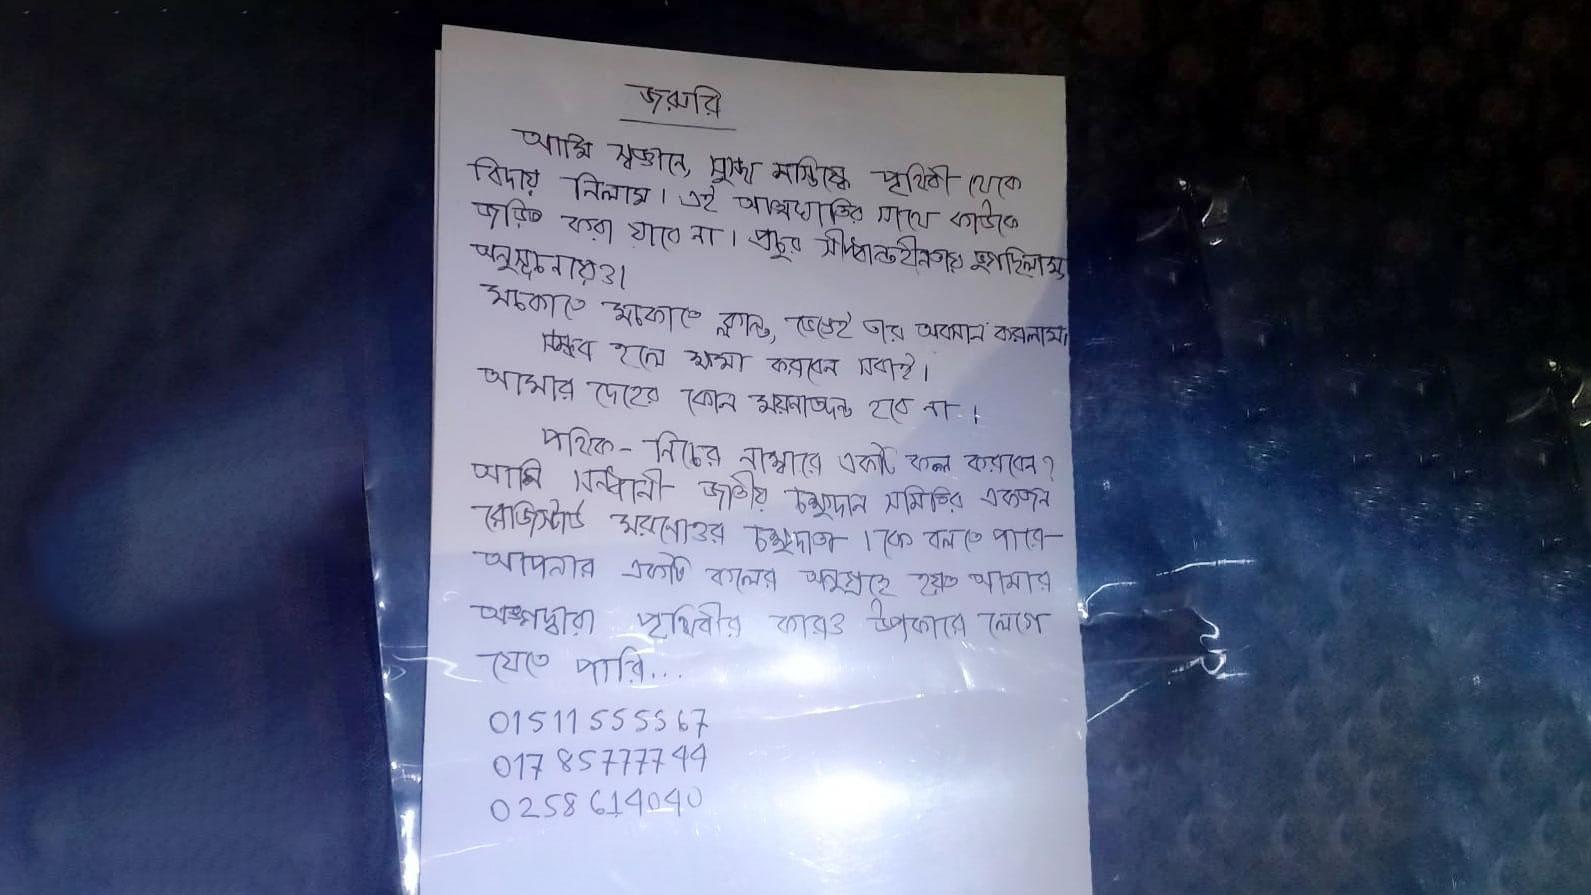 জরুরি
আমি স্বজ্ঞানে, সুস্থ মস্তিষ্কে পৃথিবী থেকে
বিদায় নিলাম। এই আত্মঘাতির সাথে কাউকে
জরিত করা যাবে না। প্রচুর সীদ্ধান্তহীনতায় ভুগছিলাম,
অনুসূচনায়ও।
মচকাতে মচকাতে ক্লান্ত, ভেঙেই তার অবসান করলাম।
সম্ভব হলে ক্ষমা করবেন সবাই।
আমার দেহের কোন ময়নাতদন্ত হবে না।
পথিক- নিচের নাম্বারে একটি কল করবেন?
আমি সন্ধানী জাতীয় চক্ষুদান সমিতির একজন
রেজিস্টার্ড মরনোত্তর চক্ষুদাতা। কে বলতে পারে-
আপনার একটি কলের অনুগ্রহে হয়ত আমার
অঙ্গদ্বারা পৃথিবীর কারও উপকারে লেগে
যেতে পারি...
01511555567
01785777744
0258614040